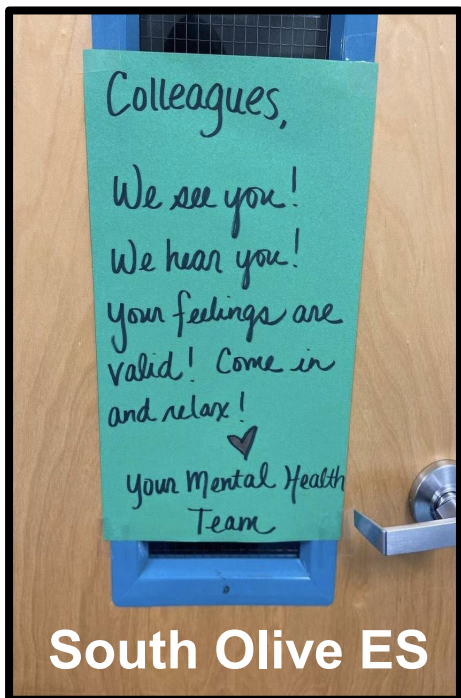 Colleagues,
We see you!
We hear you!
Your feelings are
valid! Come in
and relax!
Your Mental Health
Team
South Olive ES